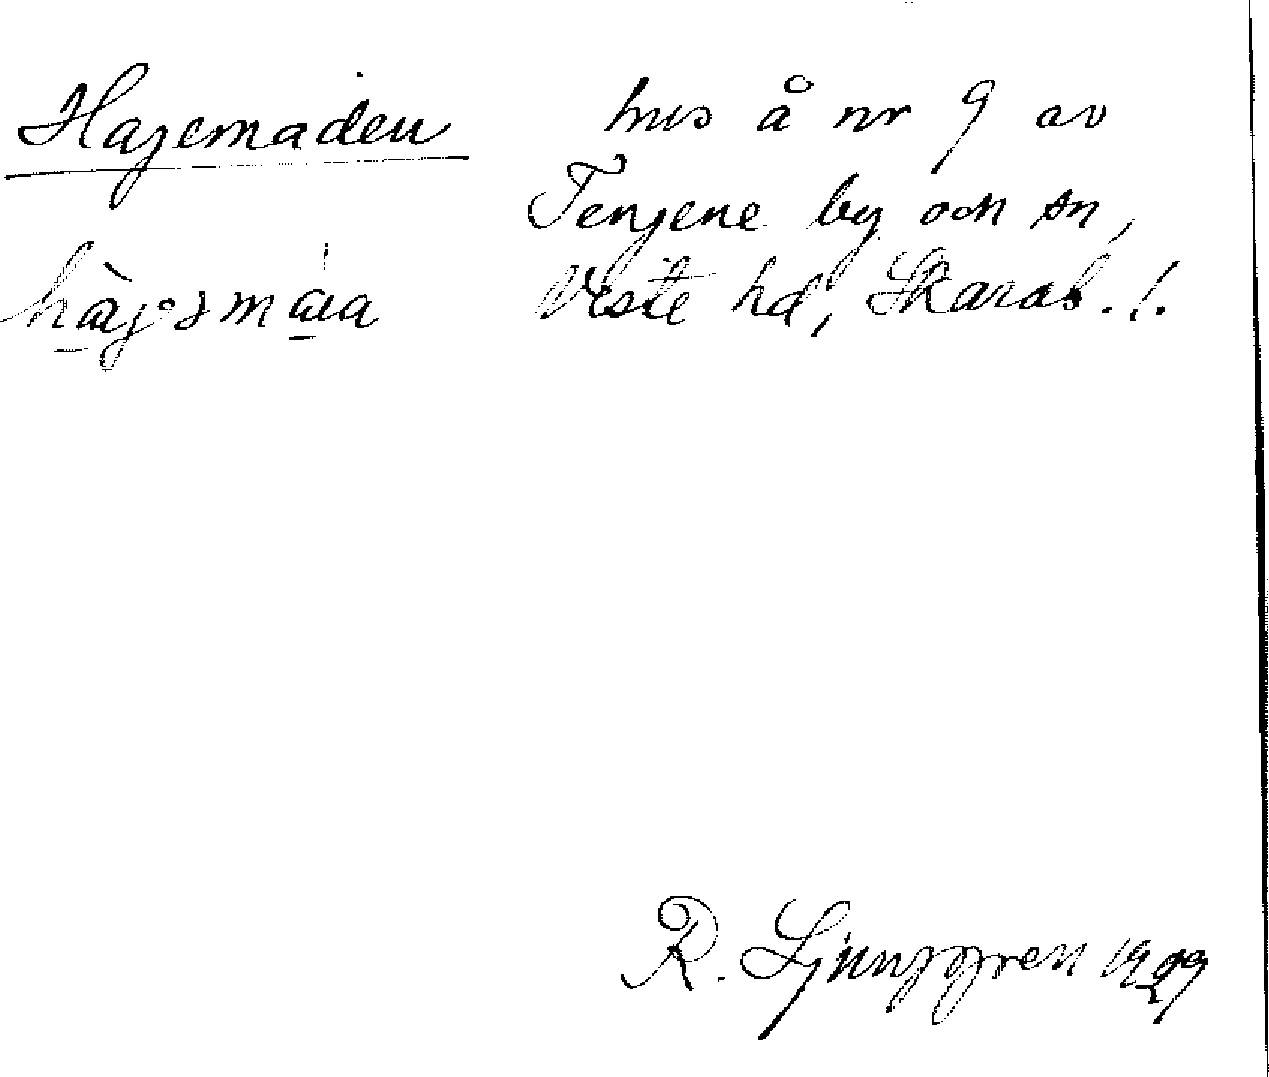 Hagemaden
hus å nr 9 av
Tengene by och sn,
Viste hd, Skarab. l.
R. Ljunggren 1929